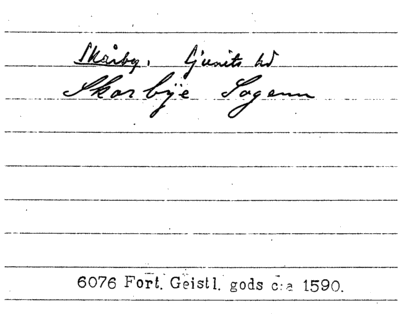 Skårby. Ljunits hd
Skarbÿe Sogenn
6076 Fort. Geistl. gods c:a 1590.